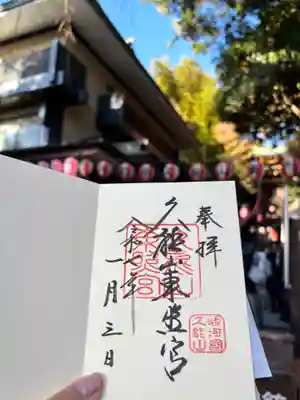 奉拝
駿河國
久能山
久能山東照宮
令和七年
一月三日